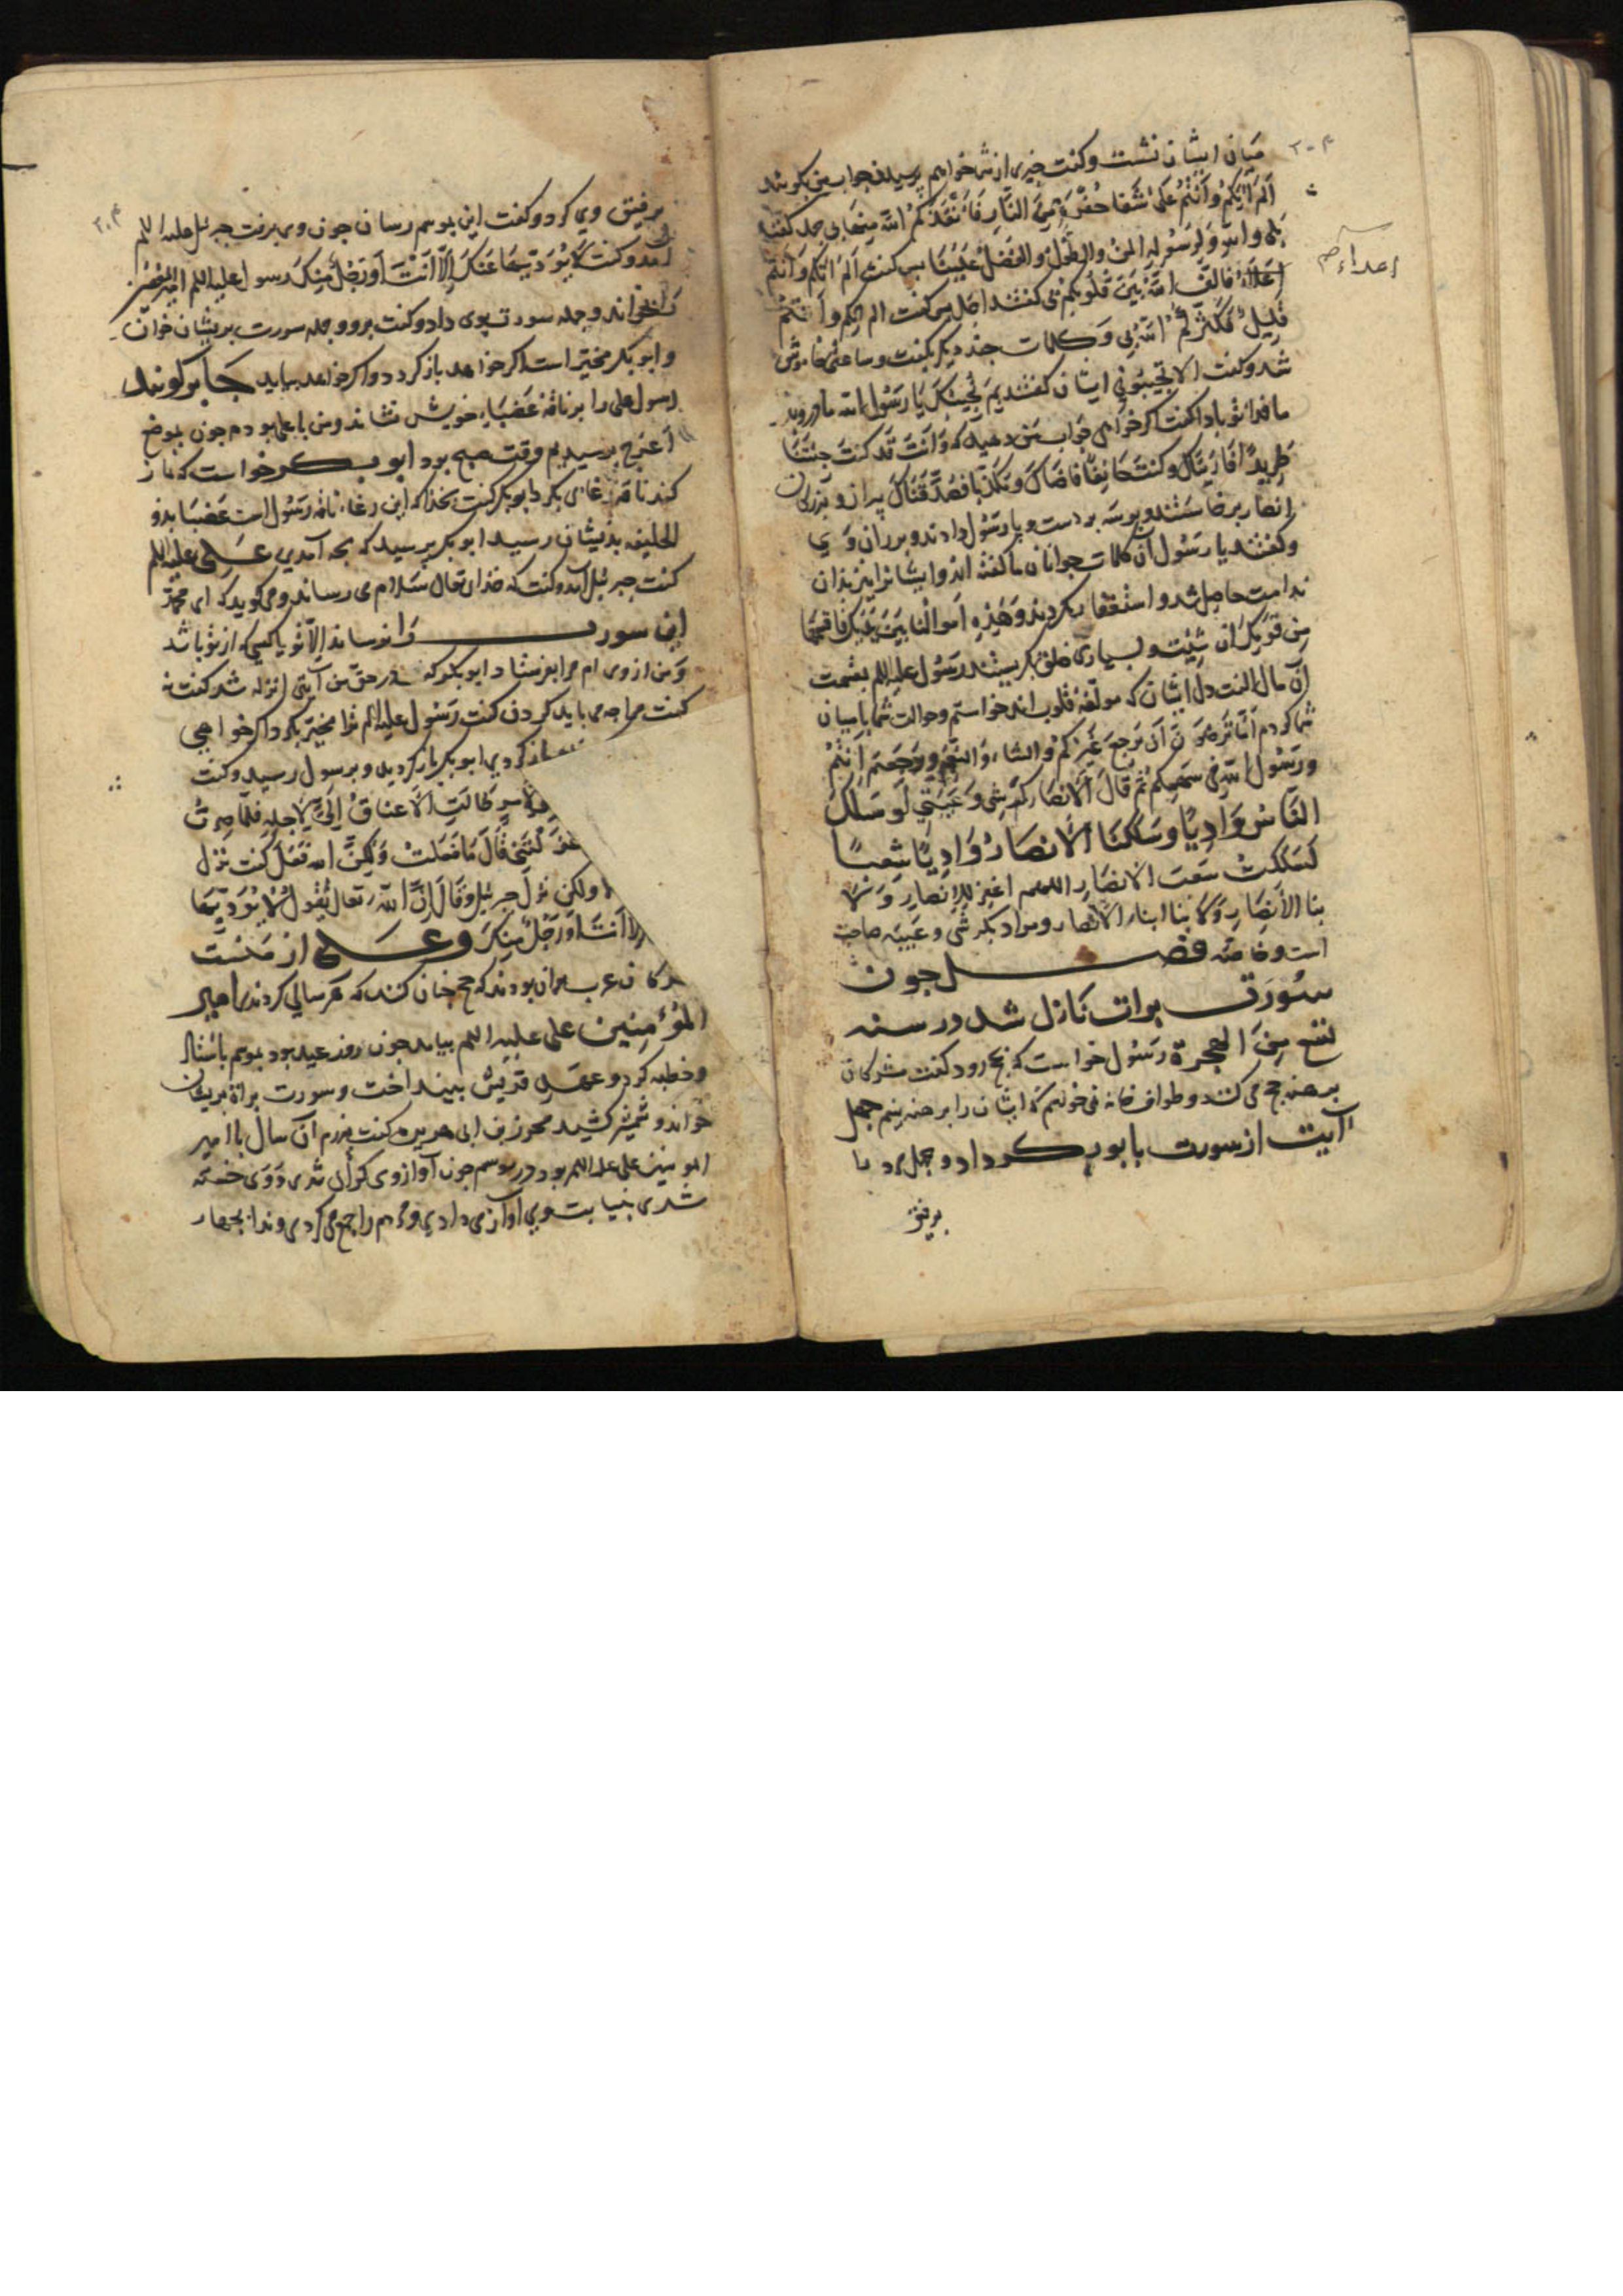 میان ایشان نشست و کفت جیزی از شما خواهم پرسید جواب من بکویید
اَلَم اٰتِکُمْ وَاَنْتُمْ عَلیٰ شَفَا حُفْرَةٍ مِنَ النَّارِ فَاَنْقَذَکُمُ اللّٰه مِنهَا بی جمله کفتند
بَلی وا للّٰه وَلِرَسُولِهِ المنّ والطَّولُ والفضلُ عَلَیْنَا بس کفت اَلَمْ اٰتِکُم وَاَنتُم
اَعْدَاءٌ فالَّفَ اللّٰه بَیْنَ قُلُوبِکُمْ بی کفتند اجل بس کفت الم اتکم وَاَنْتُمْ
قَلِیلٌ فَکَثَّرَکُمُ اللّٰه بِی وَکلمات جند دیکر بکفت و ساعتی خاموش
شد و کفت الا تُجِیبُونِی ایشان کفتند بِمَ نُجِیبُکَ یَا رَسُولَ اللّٰه مادر و پدر
ما فدای تو باد کفت اکر خواهی جواب من دهید که وَاَنْتَ قَد کُنتَ جِئتَنَا
طَرِیدًا فَاٰوَیْنَاکَ وکنتَ خَائِفًا وَمُکَذَّبًا فَصَدَّقْنَاکَ پیران و بزرکان
انصار برخاستند و بوسه بر دست و پا رسُول دادند و بر ران وی
و کفتند یا رسُول آن کلمات جوانان ما کفته اند و ایشانرا نیز بدان
ندامت حاصل شد و استغفار بکردند وَهٰذِهِ اَموالُنا بَیْنَ یَدَیکَ فَاقسِمهَا
بین قومِکَ ان شِئتَ و بسیاری خلق بکریستند رسُول علیه السلم بقسمت
آن مال الفت دل ایشان که مولّفه قلوب اند خواستم و حوالت شما باایمان
شما کردم اَمَا تَرضَونَ اَن یَرجِعَ غَیْرُکُمْ والشاءِ وَالنَّعَمِ وَرَجَعتُم اَنتُمْ
ورَسُولُ اللّٰه فِی سَهمِکُم ثُمَّ قَالَ اَلاَنصَار کَرِشِی وَعَیْبَتِی لَو سَلَکَ
النَّاسُ وَادِیًا وَسَلَکَتِ الاَنصَارُ وَادِیًا شِعبًا
لَسَلَکتُ شِعبَ الانصَارِ اللهم اغفِر لِلاَنصَارِ وَلِاَ
بنا الاَنصَارِ وَلِاَ بنا ابناء الاَنصار و مراد بکرشی و عَیبه صاحب
است و خاصه فصـــل جون
سُورت براة نازل شد در سنه
تسع مِنَ الهِجرَة رسُول خواست که بحج رود کفت مشرکان
برهنه حج می کنند و طواف خانه نمی خواهم که ایشان را برهنه بینم جهل
آیت از سورت بابوبکر داد و جهل مرد با
برفیق
۲۰۴
اعداءً صح
۳۰۴
برفیق وی کرد و کفت این بموسم رسان جون وی برفت جبرئل علیه السلم
آمد و کفت لَایُؤَدِّیْهَا عَنکَ اِلَّا اَنْتَ اَو رَجُلٌ مِنکَ رسول علیه السلم امیرالمؤمنین
را بخواند و جمله سورت بوی داد و کفت برو و جمله سورت بریشان خوان
و ابوبکر مخیّر است اکر خواهد باز کردد و اکر خواهد بیاید جابر کوید
رسول علی را بر ناقهٔ عَضبَاءِ خویش نشاند و من با علی بودم جون بموضع
اَعرج برسیدیم وقت صبح بود ابوبکر خواست که نماز
کند ناقه رغای بکرد ابوبکر کفت بخدا که این رغاء ناقه رسُول است عَضبَا بذو
الحلیفه بذیشان رسید ابوبکر پرسید که بجه آمدی عَلی علیه السلم
کفت جبرئیل آمد و کفت که خدای تعالی سلام می رساند و می کوید که ای محمّد
این سورت را نرساند اِلّا تو یا کسی که از تو باشد
وَ من از وی ام مرا بفرستاد ابوبکر که در حق من آیتی انزله شد کفت نه
کفت مرا جه می باید کردن کفت رسُول علیه السلم ترا مخیّر بکرد اکر خواهی
باز کردی ابوبکر باز کردید و برسول رسید و کفت
لِاَمرٍ طَالَتِ الاَعنَاقُ اِلَیَّ لِاَجلِهِ فَلَمَّا صِرتُ
عَزَلْتَنِی قَالَ مَا فَعَلتُ وَلٰکِنَّ اللّٰه فَعَلَ کفت نزل
ولکن نزل جبرئیل وَقَالَ اِنَّ اللّٰه تعالی یَقُولُ لَا یُؤَدِّیْهَا
اِلَّا اَنتَ اَو رَجُلٌ مِنکَ وعَلی از مَنست
مشرکان عرب بران بودند که حج جنان کنند که هر سالی کردند امیر
المُؤْمِنِین علی علیه السلم بیامد جون روز عید بود بموسم باستاد
و خطبه کرد و عهد قریش بینداخت و سورت براة بریشان
خواند و شمشیر کشید محرز بن ابی هریره کفت من دران سال با امیر
المومنین علی علیه السلم بودم در موسم جون آواز وی کران شدی و وی خسته
شدی بنیابت وی آواز می دادمی و مردم را جمع می کردمی و ندا بجهار